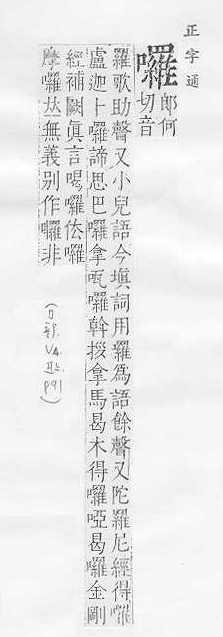 正字通
囉
郎何
切音
羅歌助聲又小兒語今塡詞用羅為語餘聲又陀羅尼經得囉
盧迦卜囉諦思巴囉拿囉斡拿馬曷木得囉啞曷囉金剛
經補闕眞言喝囉佉囉
摩囉𠀤無義别作囉非
(口部,
V4
丑上
p91)